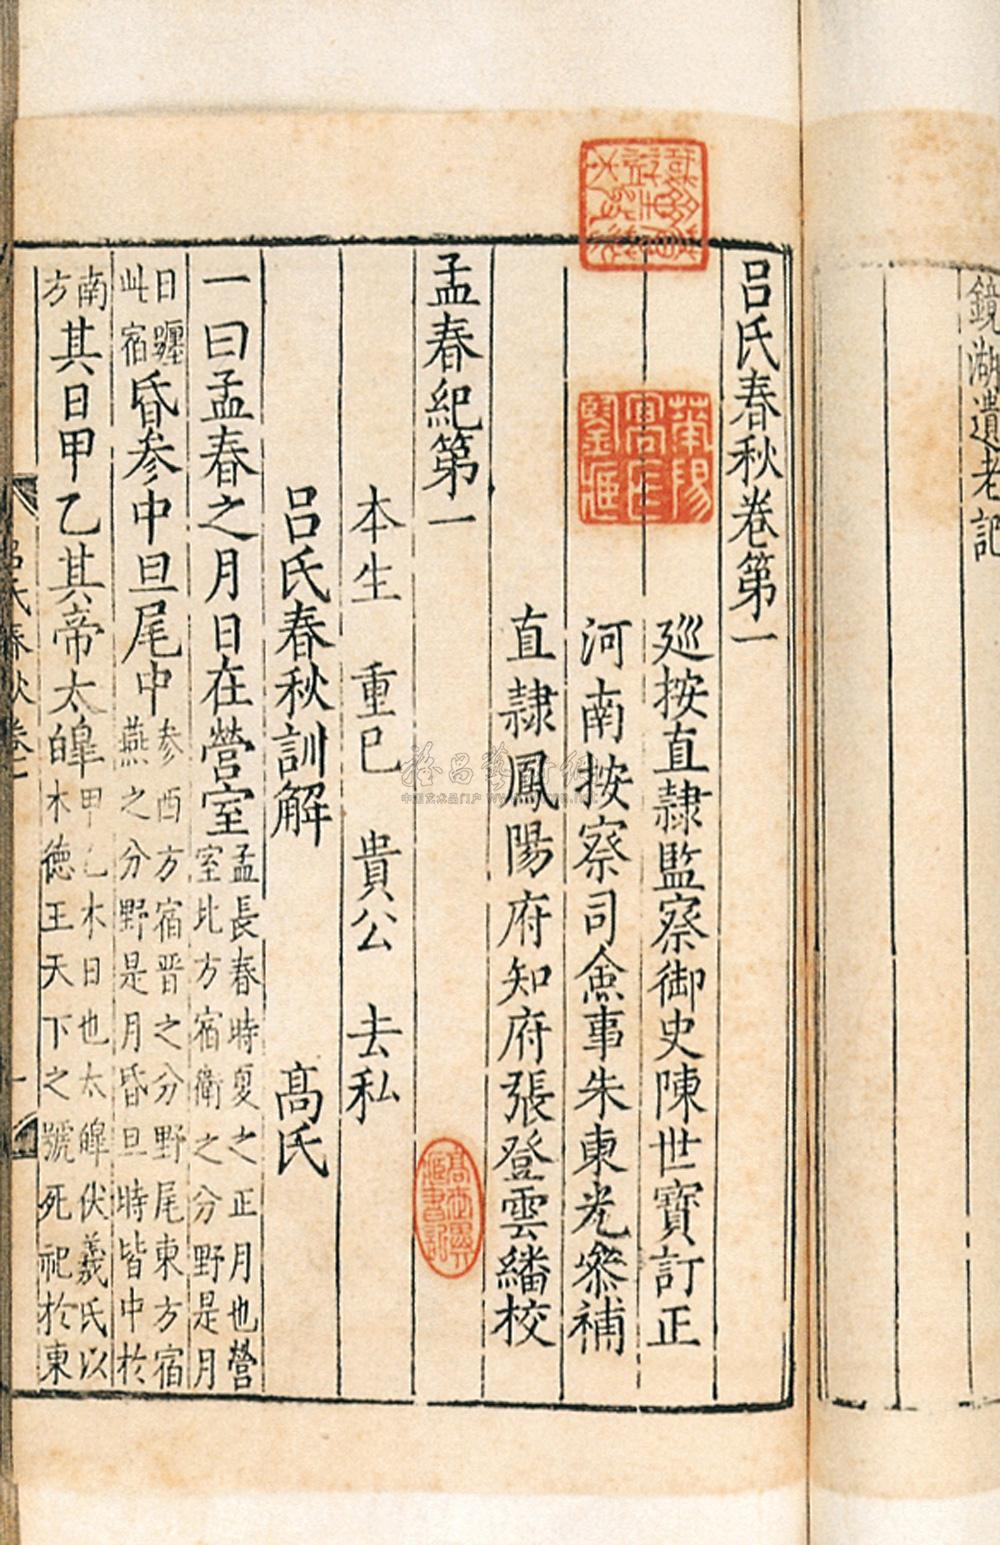 鏡湖遺老記
呂氏春秋卷第一
廵按直隷監察御史陳世寶訂正
河南按察司僉事朱東光叅補
直隷鳳陽府知府張登雲繙校
孟春紀第一
本生 重巳 貴公 去私
呂氏春秋訓解 高氏
一曰孟春之月日在營室孟長春時夏之正月也營室北方宿衛之分野是月
日躔此宿昏参中旦尾中参西方宿晋之分野尾東方宿燕之分野是月昏旦時皆中於
南方其日甲乙其帝太皥甲乙木日也太皥伏羲氏以木德王天下之號死祀於東
呂氏春秋卷一 一